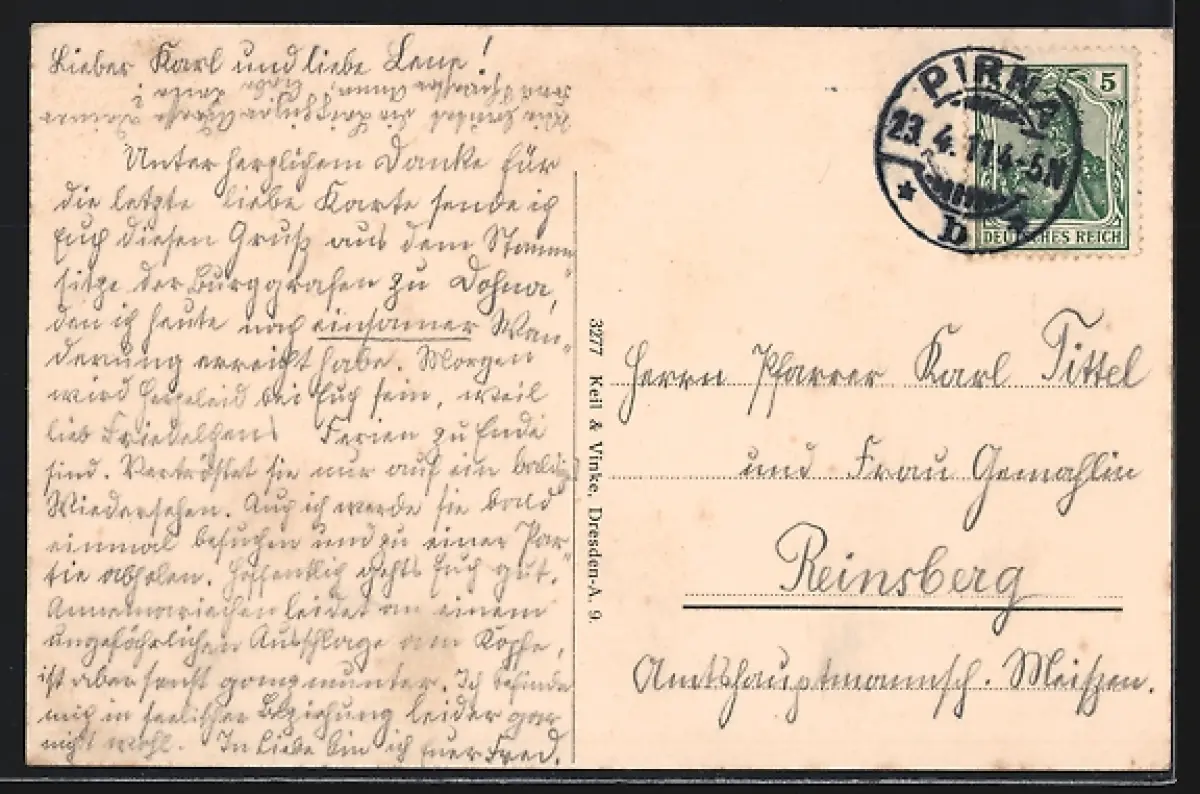 Lieber Karl und liebe Lene!
Unter herzlichem Danke für
die letzte liebe Karte sende ich
Euch diesen Gruß aus dem Stamm-
sitze der Burggrafen zu Dohna,
den ich heute nach einsamer Wan-
derung erreicht habe. Morgen
wird Herzeleid bei Euch sein, weil
lieb Friedelchens Ferien zu Ende
sind. Vertröstet sie nur auf ein baldig
Wiedersehen. Auch ich werde sie bald
einmal besuchen und zu einer Par-
tie abholen. Hoffentlich gehts Euch gut.
Annemariechen leidet an einem
ungefährlichen Ausschlage am Kopfe,
ist aber sonst ganz munter. Ich befinde
mich in seelischer Beziehung leider gar
nicht wohl. In Liebe bin ich Euer Fred.
3277 Keil & Vinke, Dresden-A. 9.
PIRNA
23.4.11 4-5N
* b
5
DEUTSCHES REICH
Herrn Pfarrer Karl Tittel
und Frau Gemahlin
Reinsberg
Amtshauptmannsch. Meißen.